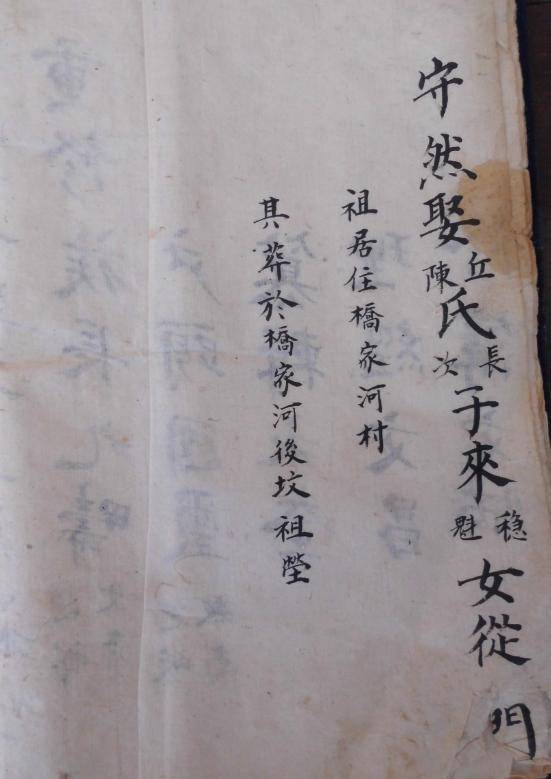 守然娶丘陳氏長次子來穏魁女從門
祖居住橋家河村
其葬於橋家河後坟祖塋